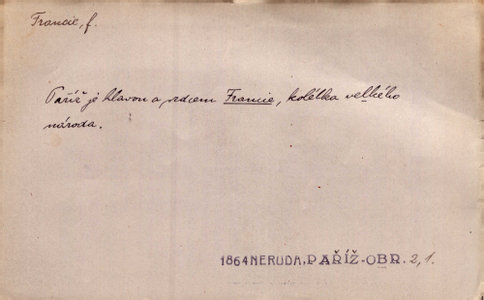 Francie, f.
Paříž je hlavou a srdcem Francie, kolébka velkého
národa.
1864 NERUDA, PAŘÍŽ-OBR. 2,1.